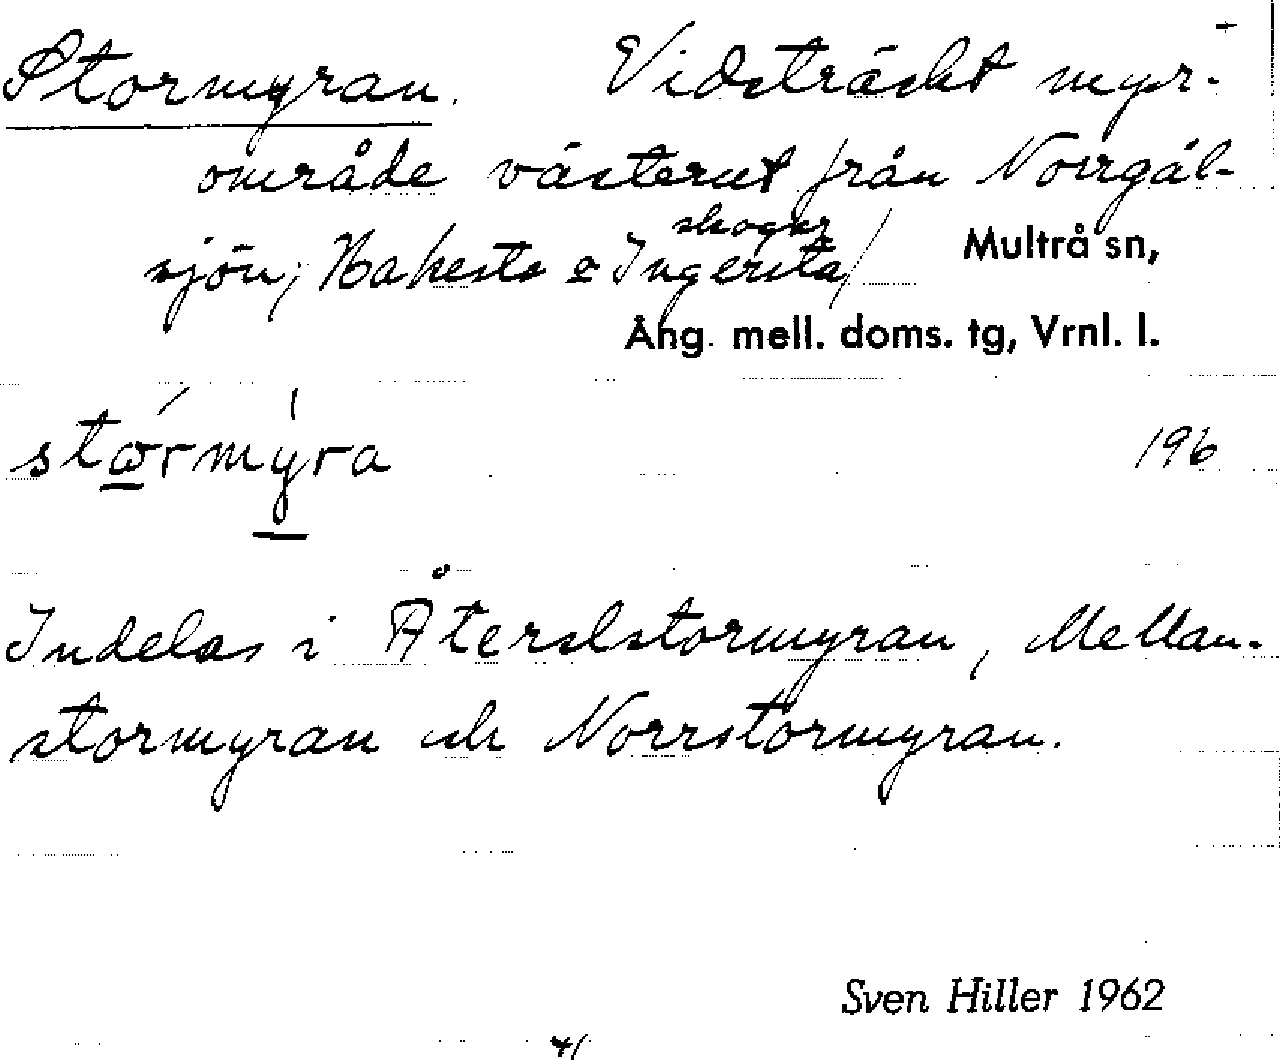 Stormyran. Vidsträckt myr-
område västerut från Norrgäl-
sjön; Hakesta o Ingersta skogar/
Multrå sn,
Ång. mell. doms. tg, Vrnl. l.
stơrmýra
196
Indelas i Återslstormyran, Mellan-
stormyran och Norrstormyran.
Sven Hiller 1962